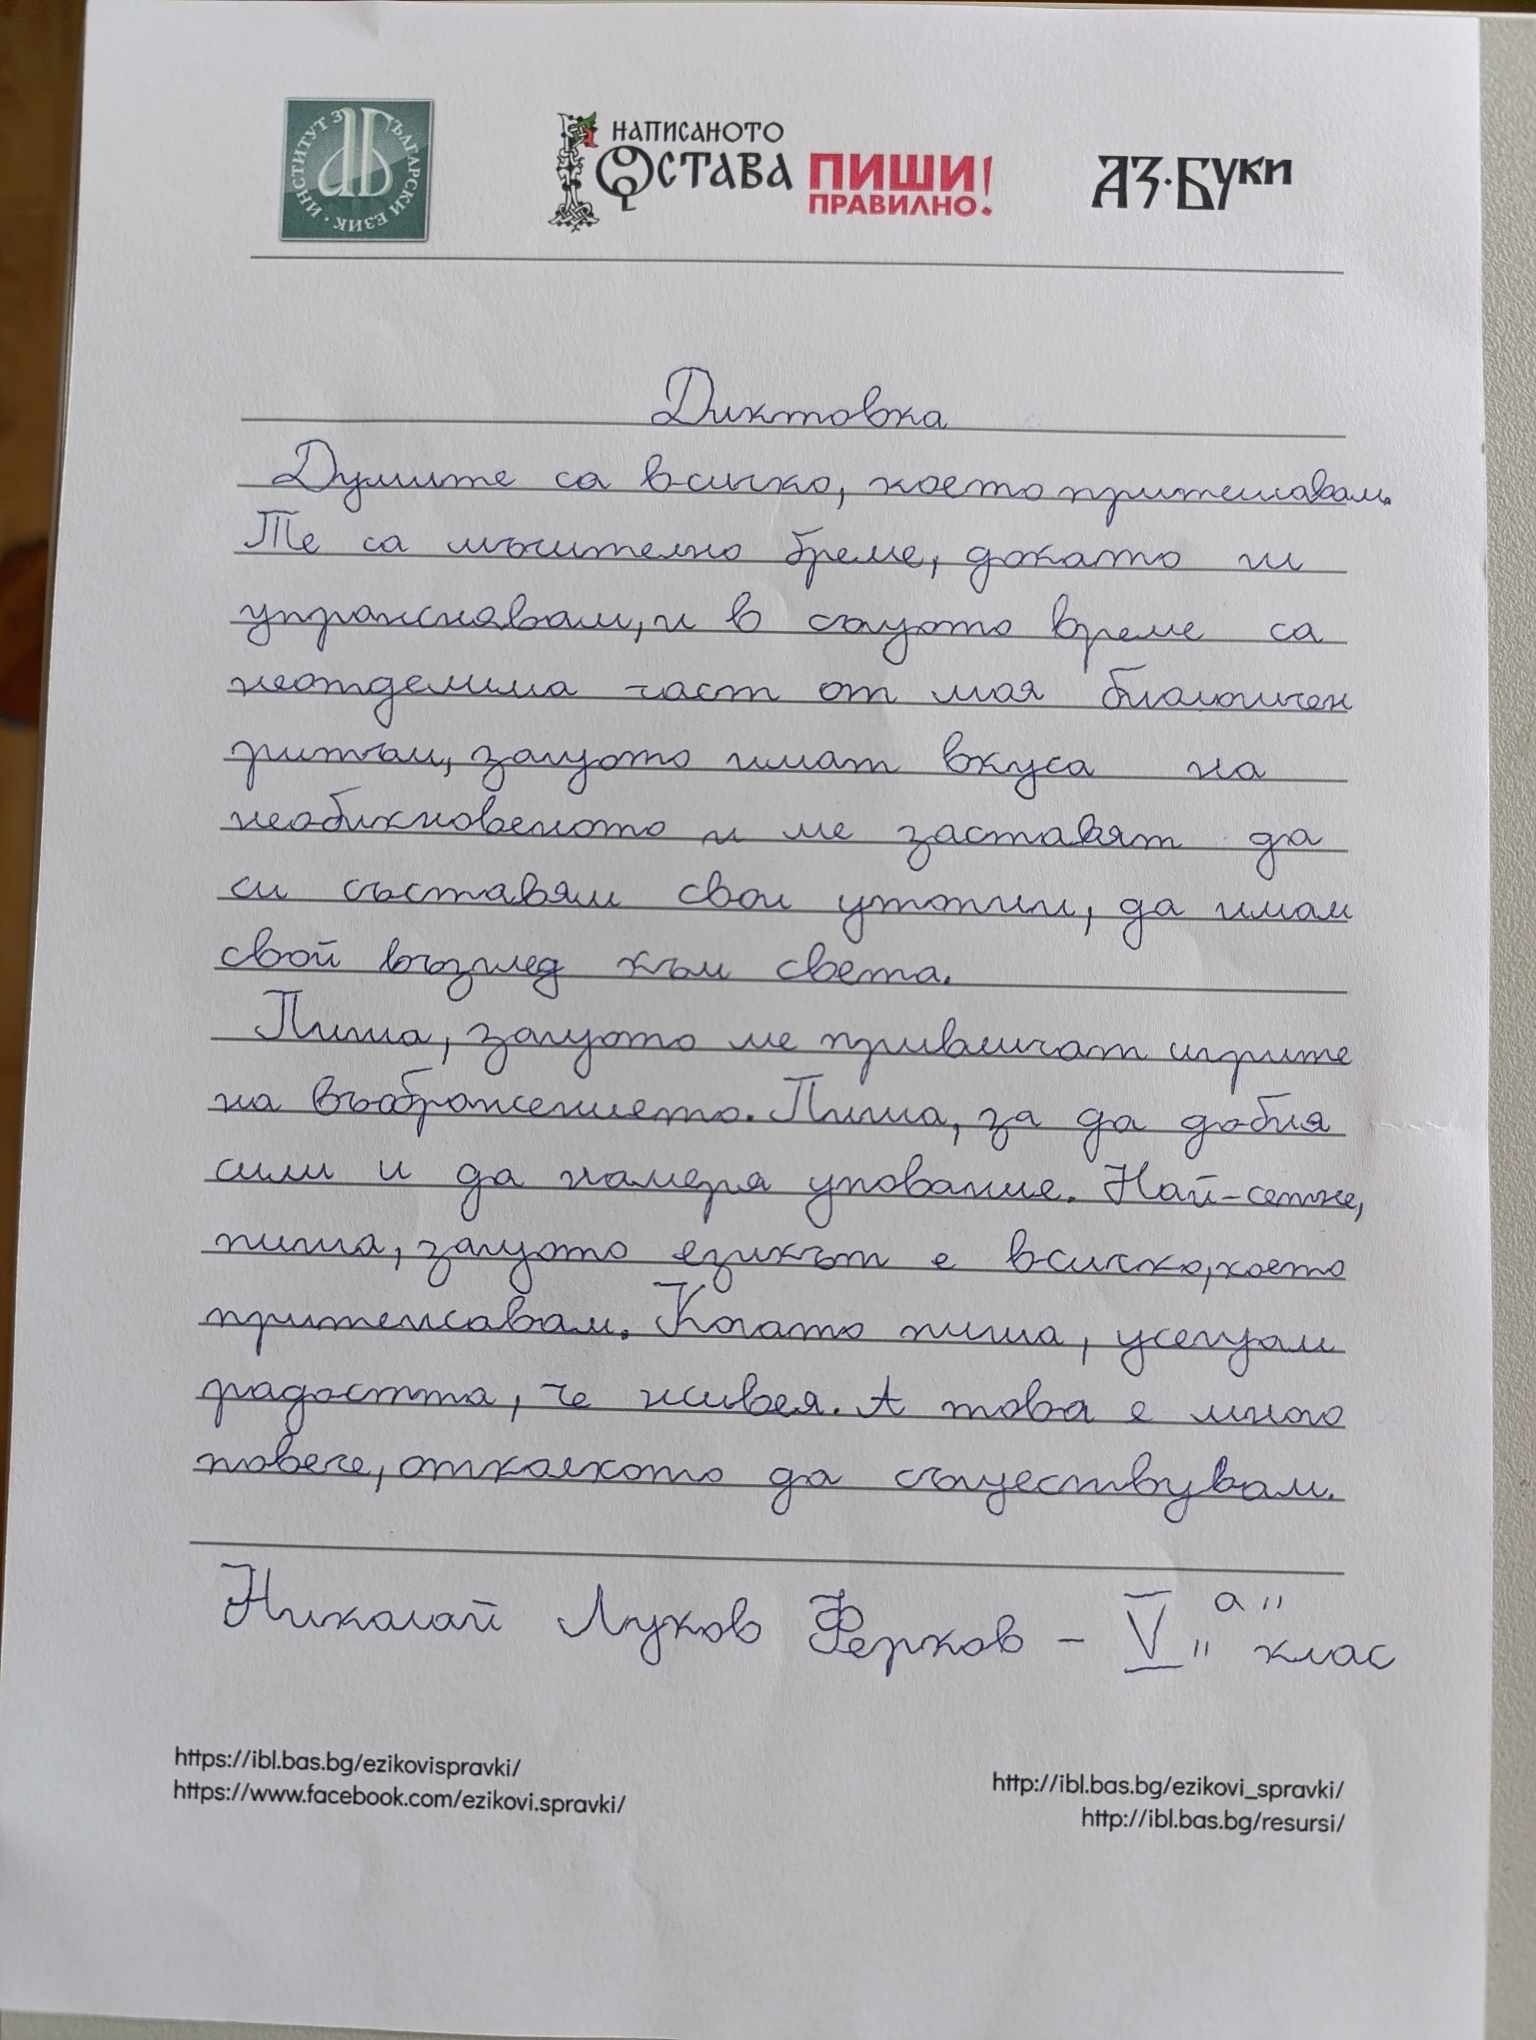 ИНСТИТУТ ЗА БЪЛГАРСКИ ЕЗИК
НАПИСАНОТО
ОСТАВА
ПИШИ
ПРАВИЛНО!
АЗ·БУКИ
Диктовка
Думите са всичко, което притежавам.
Те са мъчително бреме, докато ги
упражнявам, и в същото време са
неотделима част от моя биологичен
ритъм, защото имат вкуса на
необикновеното и ме заставят да
си съставям свои утопии, да имам
свой възглед към света.
Пиша, защото ме привличат игрите
на въображението. Пиша, за да добия
сили и да намеря упование. Най-сетне,
пиша, защото езикът е всичко, което
притежавам. Когато пиша, усещам
радостта, че живея. А това е много
повече, отколкото да съществувам.
Николай Луков Ферков - V "а" клас
https://ibl.bas.bg/ezikovispravki/
https://www.facebook.com/ezikovi.spravki/
http://ibl.bas.bg/ezikovi_spravki/
http://ibl.bas.bg/resursi/